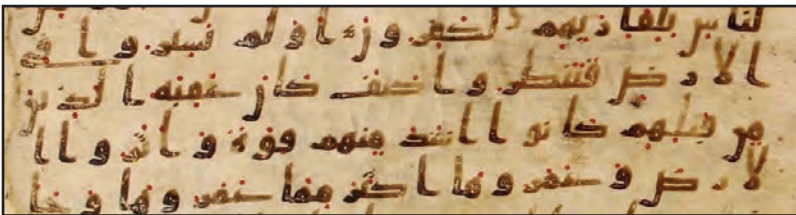 لناس بلقا ربهم لكفرون اولم يسيروا في
الارض فينظروا كيف كان عقبه الذين
من قبلهم كانوا اشد منهم قوه واثروا ا
لارض وعمروها اكثر مما عمروها وجا